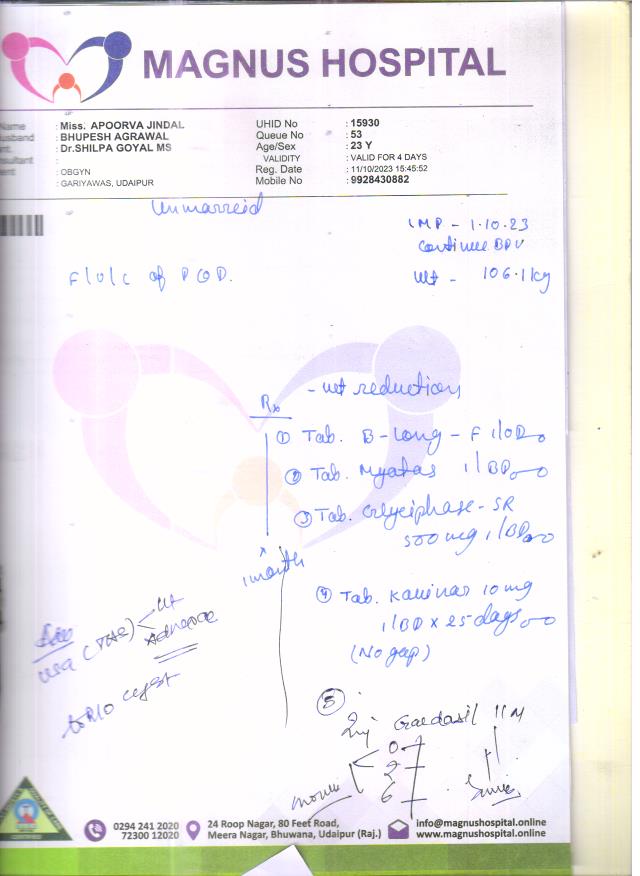 MAGNUS HOSPITAL
Name : Miss. APOORVA JINDAL
usband : BHUPESH AGRAWAL
nt. : Dr.SHILPA GOYAL MS
sultant :
ent : OBGYN
: GARIYAWAS, UDAIPUR
UHID No : 15930
Queue No : 53
Age/Sex : 23 Y
VALIDITY : VALID FOR 4 DAYS
Reg. Date : 11/10/2023 15:45:52
Mobile No : 9928430882
Unmarreid
LMP - 1.10.23
continue BPV
F/U/C of PCOD.
Wt - 106.1 kg
- wt reduction
Rx
① Tab. B-Long - F 1/OD
② Tab. Myatas 1/BD
③ Tab. Glyciphase - SR
500 mg 1/BD
1 month
④ Tab. Kaminar 10 mg
1/BD x 25 days
(No gap)
USG (TAS) Ut
Adnexae
to R/O
⑤
Inj Gardasil 1 IM
0
2
6
0294 241 2020
72300 12020
24 Roop Nagar, 80 Feet Road,
Meera Nagar, Bhuwana, Udaipur (Raj.)
info@magnushospital.online
www.magnushospital.online